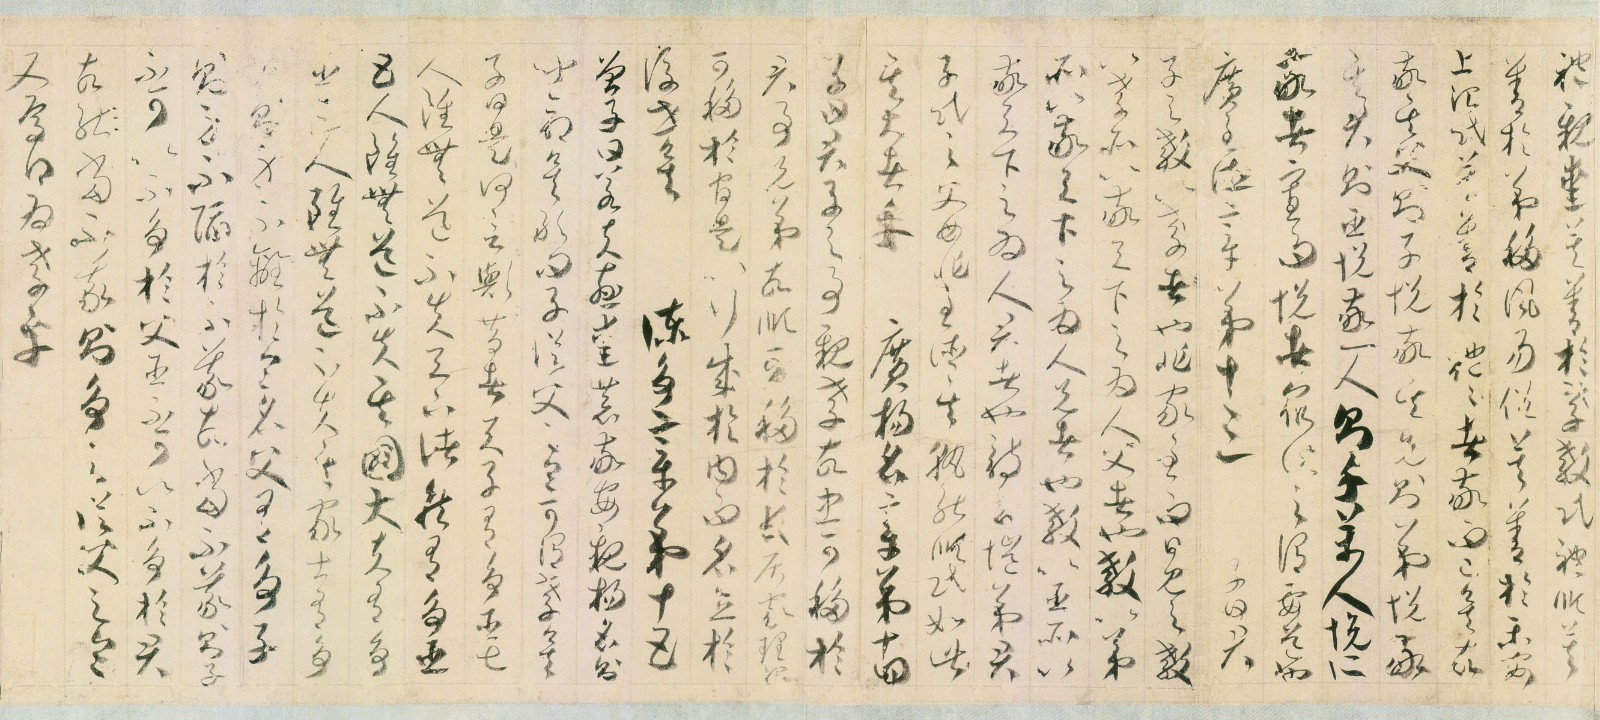 禮親愛莫善於孝教民禮順莫
善於弟移風易俗莫善於樂安
上治民莫善於禮禮者敬而已矣故
敬其父則子悅敬其兄則弟悅敬
其君則臣悅敬一人則千萬人悅所
敬者寡而悅者衆此之謂要道
廣至德章第十三 子曰君
子之教以孝也非家至而日見之教
以孝所以敬天下之為人父者也教以弟
所以敬天下之為人兄者也教以臣所以
敬天下之為人君者也詩云愷悌君
子民之父母非至德其孰能順民如此
其大者乎 廣揚名章第十四
子曰君子之事親孝故忠可移於
君事兄弟故順可移於長居家理治
可移於官是以行成於內而名立於
後世矣 諫爭章第十五
曾子曰若夫慈愛恭敬安親揚名則
聞命矣敢問子從父之令可謂孝矣
子曰是何言與昔者天子有爭臣七
人雖無道不失天下諸侯有爭臣
五人雖無道不失其國大夫有爭
臣三人雖無道不失其家士有爭
友則身不離於令名父有爭子
則身不陷於不義故當不義則子
不可以不爭於父臣不可以不爭於君
故當不義則爭之從父之令
又焉得為孝乎